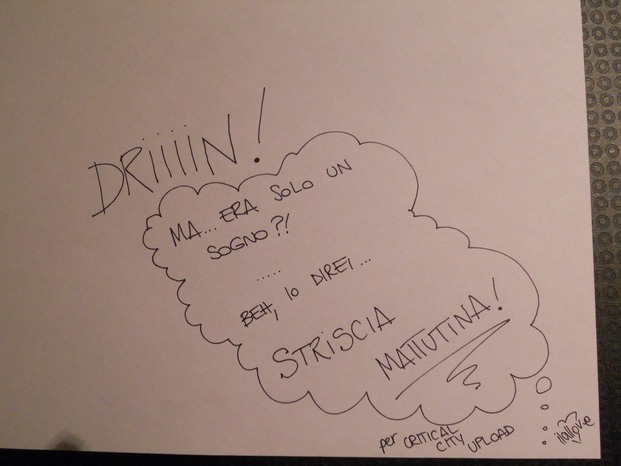 DRIIIIN!
MA... ERA SOLO UN
SOGNO?!
.....
BEH, IO DIREI...
STRISCIA
MATTUTINA!
per CRITICAL
CITY UPLOAD